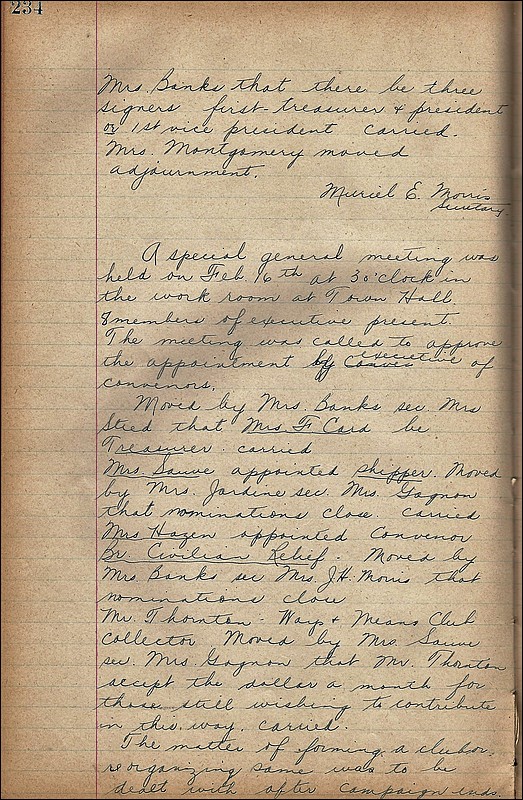 234
Mrs. Banks that there be three
signers first treasurer & president
or 1st vice president carried.
Mrs. Montgomery moved
adjournment.
Muriel E. Morris
Secretary.
A special general meeting was
held on Feb. 16th at 3 o'clock in
the work room at Town Hall.
8 members of executive present.
The meeting was called to approve
the appointment by executive of
convenors.
Moved by Mrs. Banks sec. Mrs
Sted that Mrs F Card be
Treasurer. carried
Mrs. Sauve appointed shipper. Moved
by Mrs. Jardine sec. Mrs. Gagnon
that nominations close carried
Mrs Hazen appointed Convenor
Br. Civilian Relief. Moved by
Mrs. Banks sec Mrs. J.H. Morris that
nominations close
Mr. Thornton - Ways & Means Club
Collector Moved by Mrs. Sauve
sec. Mrs. Gagnon that Mr. Thornton
accept the dollar a month for
those still wishing to contribute
in this way. carried.
The matter of forming a club or
reorganizing same was to be
dealt with after campaign ends.